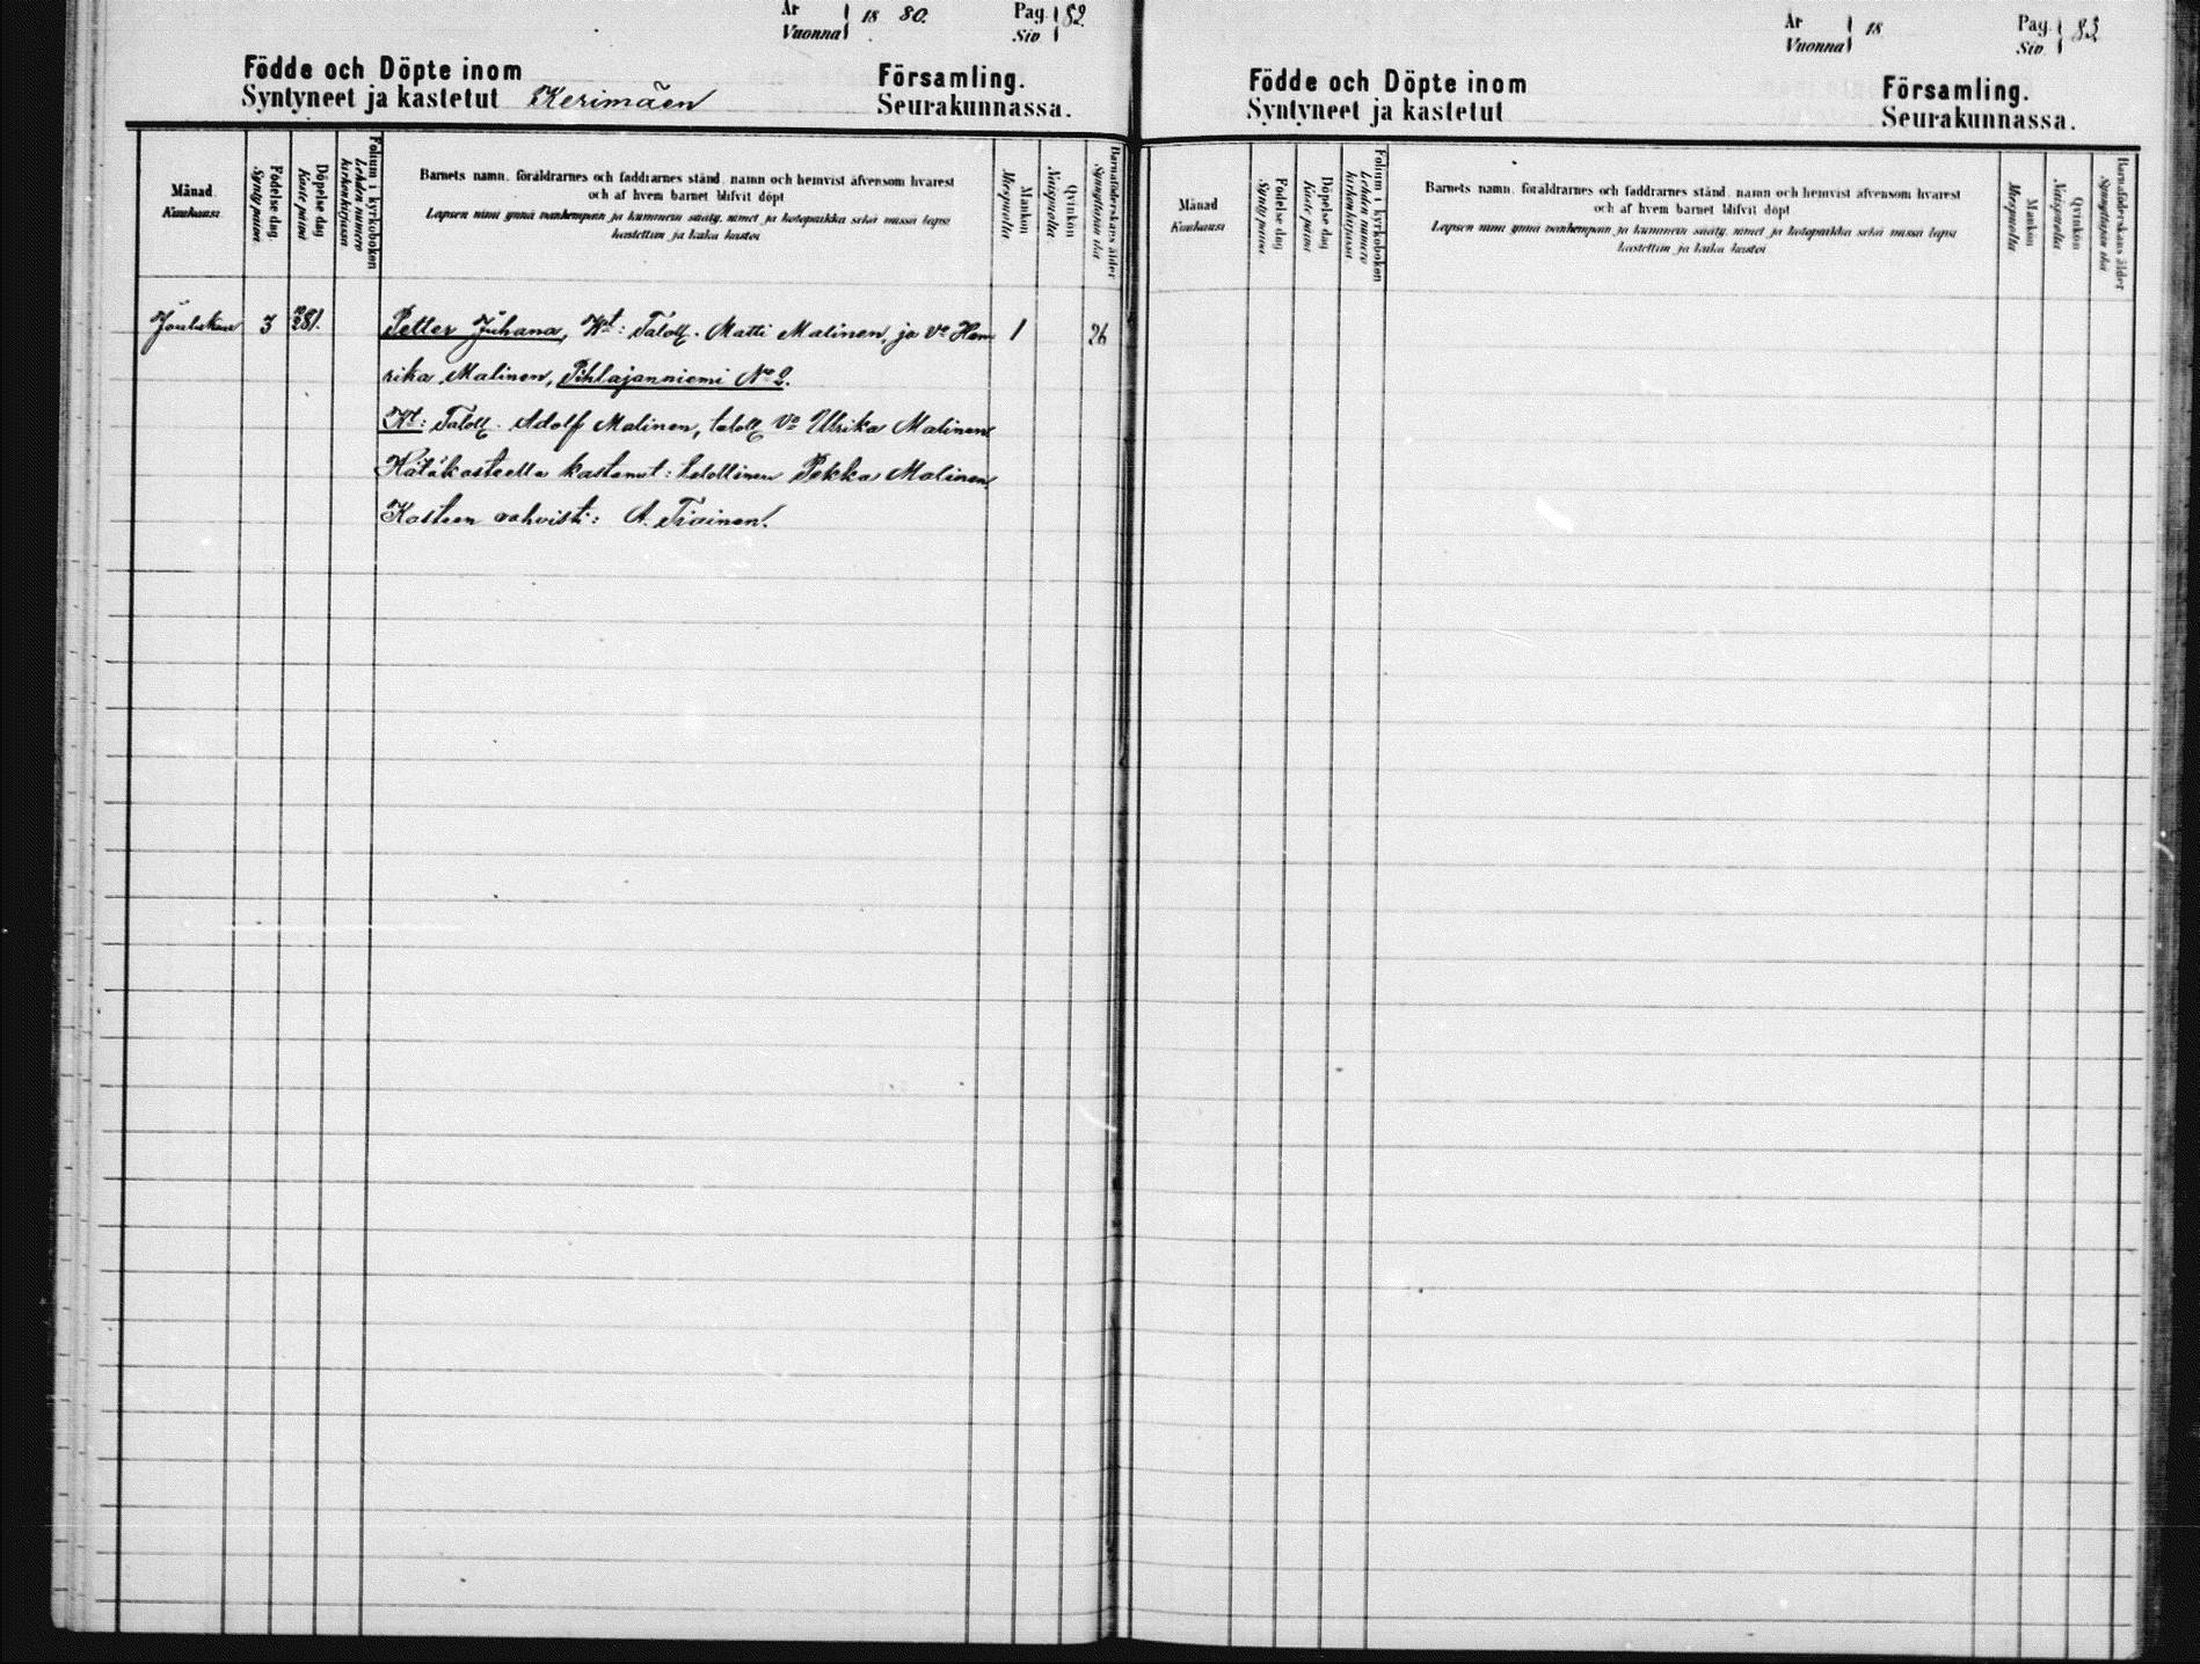 År 18 80. Pag. 82
Vuonna Siv
Födde och Döpte inom Församling.
Syntyneet ja kastetut Kerimäen Seurakunnassa.
Månad Kuukausi
Födelse dag Synty päivä
Döpelse dag Kaste päivä
Folium i kyrkoboken Lehden numero kirkonkirjassa
Barnets namn, föräldrarnes och faddrarnes stånd, namn och hemvist äfvensom hvarest
och af hvem barnet blifvit döpt
Lapsen nimi ynnä vanhempain ja kummein sääty, nimet ja kotopaikka sekä missä lapsi
kastettiin ja kuka kastoi
Mankön Miespuolia
Qvinkön Naispuolia
Barnaföderskans ålder Synnyttäjän ikä
Joulukuu 3 Petter Juhana, Wt: Taloll. Matti Malinen, ja Vo Hen- 1 26
rika Malinen, Pihlajanniemi No 2.
Kt: Taloll. Adolf Malinen, taloll Vo Ulrika Malinen
Hätäkasteella kastanut: talollinen Pekka Malinen,
Kasteen vahvisti: A. Tiainen.
År 18 Pag. 83
Vuonna Siv
Födde och Döpte inom Församling.
Syntyneet ja kastetut Seurakunnassa.
Månad Kuukausi
Födelse dag Synty päivä
Döpelse dag Kaste päivä
Folium i kyrkoboken Lehden numero kirkonkirjassa
Barnets namn, föräldrarnes och faddrarnes stånd, namn och hemvist äfvensom hvarest
och af hvem barnet blifvit döpt
Lapsen nimi ynnä vanhempain ja kummein sääty, nimet ja kotopaikka sekä missä lapsi
kastettiin ja kuka kastoi
Mankön Miespuolia
Qvinkön Naispuolia
Barnaföderskans ålder Synnyttäjän ikä